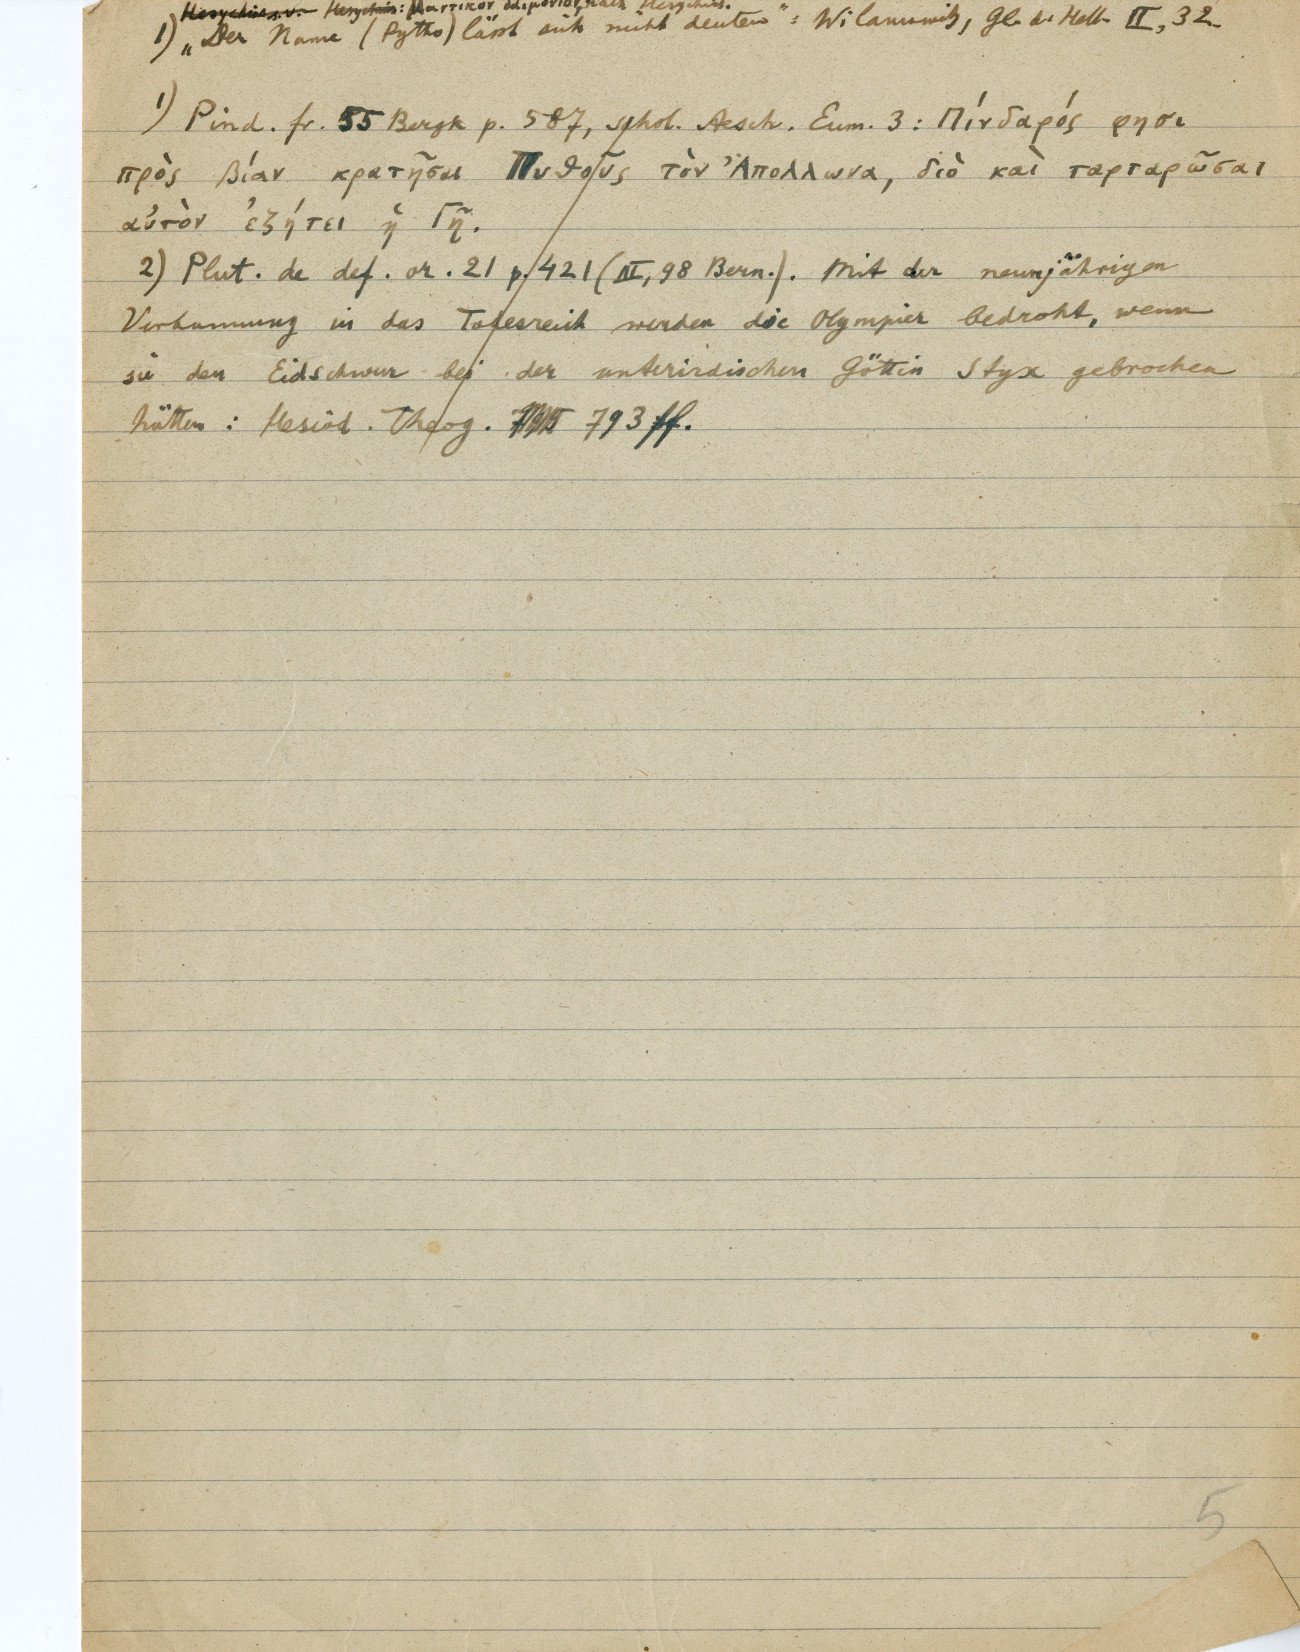 Hesychius s.v. Hesychius: μαντικὸν δαιμόνιον, nach Hesychius.
1) „Der Name (Pytho) lässt sich nicht deuten": Wilamowitz, Gl. d. Hell. II, 32
1) Pind. fr. 55 Bergk p. 587, schol. Aesch. Eum. 3: Πίνδαρός φησι
πρὸς βίαν κρατῆσαι Πυθοῦς τὸν Ἀπολλωνα, διὸ καὶ ταρταρῶσαι
αὐτὸν ἐζήτει ἡ Γῆ.
2) Plut. de def. or. 21 p. 421 (III, 98 Bern.). Mit der neunjährigen
Verbannung in das Totenreich werden die Olympier bedroht, wenn
sie den Eidschwur bei der unterirdischen Göttin Styx gebrochen
hätten: Hesiod. Theog. 793 ff.
5